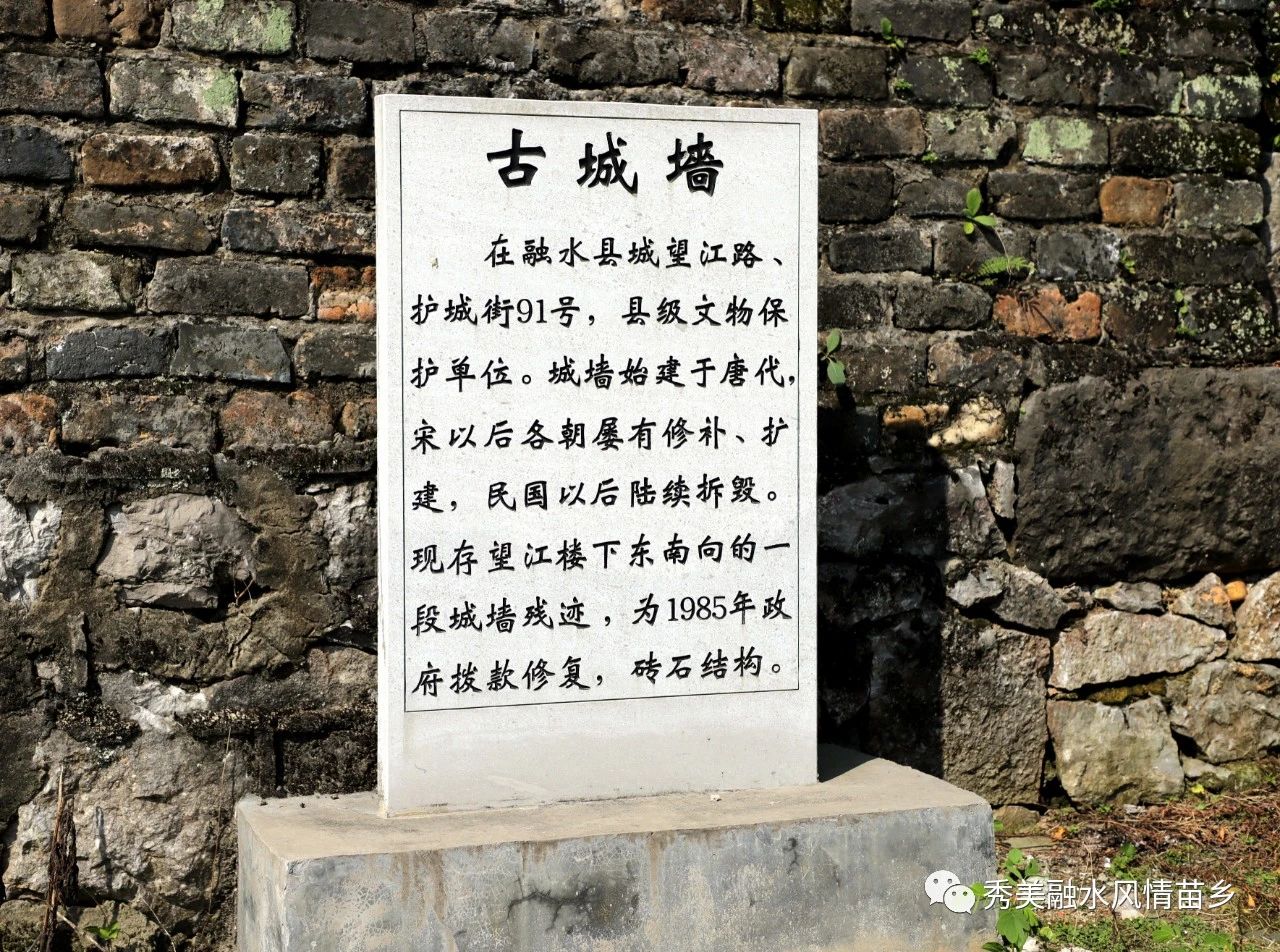 古城墙
在融水县城望江路、
护城街91号，县级文物保
护单位。城墙始建于唐代，
宋以后各朝屡有修补、扩
建，民国以后陆续拆毁。
现存望江楼下东南向的一
段城墙残迹，为1985年政
府拨款修复，砖石结构。
秀美融水风情苗乡